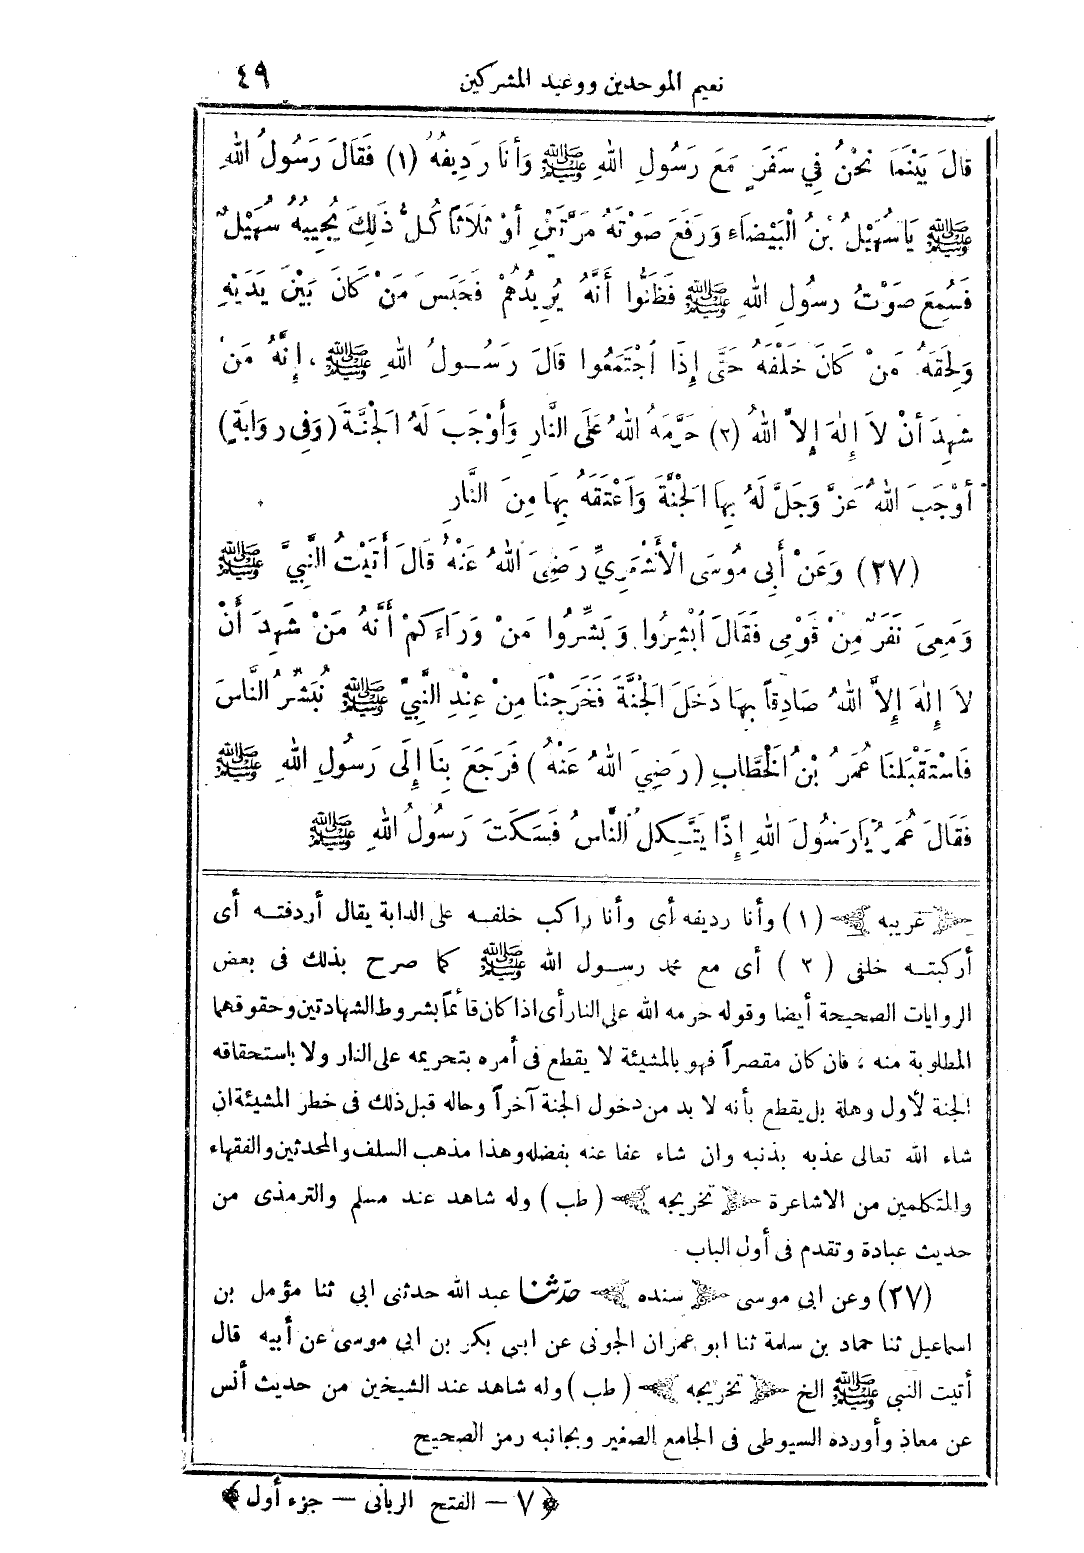 نعيم الموحدين ووعيد المشركين ٤٩
قَالَ بَيْنَمَا نَحْنُ فِي سَفَرٍ مَعَ رَسُولِ اللهِ ﷺ وَأَنَا رَدِيفُهُ (١) فَقَالَ رَسُولُ اللهِ
ﷺ يَاسُهَيْلُ بْنُ الْبَيْضَاءِ وَرَفَعَ صَوْتَهُ مَرَّتَيْنِ أَوْ ثَلَاثًا كُلُّ ذَلِكَ يُجِيبُهُ سُهَيْلٌ
فَسُمِعَ صَوْتُ رسُولِ اللهِ ﷺ فَظَنُّوا أَنَّهُ يُرِيدُهُمْ فَحَبَسَ مَنْ كَانَ بَيْنَ يَدَيْهِ
وَلَحِقَهُ مَنْ كَانَ خَلْفَهُ حَتَّى إِذَا اجْتَمَعُوا قَالَ رَسُولُ اللهِ ﷺ ، إِنَّهُ مَنْ
شَهِدَ أَنْ لاَ إِلَهَ إِلاَّ اللهُ (٢) حَرَّمَهُ اللهُ عَلَى النَّارِ وَأَوْجَبَ لَهُ الْجَنَّةَ (وَفِى رِوَايَةٍ)
أَوْجَبَ اللهُ عَزَّ وَجَلَّ لَهُ بِهَا الْجَنَّةَ وَأَعْتَقَهُ بِهَا مِنَ النَّارِ
(٢٧) وَعَنْ أَبِى مُوسَى الْأَشْعَرِيِّ رَضِىَ اللهُ عَنْهُ قَالَ أَتَيْتُ النَّبِيَّ ﷺ
وَمَعِىَ نَفَرٌ مِنْ قَوْمِى فَقَالَ أَبْشِرُوا وَبَشِّرُوا مَنْ وَرَاءَكُمْ أَنَّهُ مَنْ شَهِدَ أَنْ
لاَ إِلَهَ إِلاَّ اللهُ صَادِقاً بِهَا دَخَلَ الْجَنَّةَ فَخَرَجْنَا مِنْ عِنْدِ النَّبِيِّ ﷺ نُبَشِّرُ النَّاسَ
فَاسْتَقْبَلَنَا عُمَرُ بْنُ الْخَطَّابِ (رَضِيَ اللهُ عَنْهُ) فَرَجَعَ بِنَا إِلَى رَسُولِ اللهِ ﷺ
فَقَالَ عُمَرُ يَارَسُولَ اللهِ إِذًا يَتَّكِلُ النَّاسُ فَسَكَتَ رَسُولُ اللهِ ﷺ
﴿ غريبه ﴾ (١) وأنا رديفه أى وأنا راكب خلفه على الدابة يقال أردفته أى
أركبته خلفى (٢) أى مع محمد رسول الله ﷺ كما صرح بذلك فى بعض
الروايات الصحيحة أيضا وقوله حرمه الله على النار أى اذا كان قائماً بشروط الشهادتين وحقوقهما
المطلوبة منه ، فان كان مقصراً فهو بالمشيئة لا يقطع فى أمره بتحريمه على النار ولا باستحقاقه
الجنة لأول وهلة بل يقطع بأنه لا بد من دخول الجنة آخراً وحاله قبل ذلك فى خطر المشيئة ان
شاء الله تعالى عذبه بذنبه وان شاء عفا عنه بفضله وهذا مذهب السلف والمحدثين والفقهاء
والمتكلمين من الاشاعرة ﴿ تخريجه ﴾ (طب) وله شاهد عند مسلم والترمذى من
حديث عبادة وتقدم فى أول الباب
(٢٧) وعن ابى موسى ﴿ سنده ﴾ حدّثنا عبد الله حدثنى ابى ثنا مؤمل بن
اسماعيل ثنا حماد بن سلمة ثنا ابو عمران الجونى عن ابى بكر بن ابى موسى عن أبيه قال
أتيت النبى ﷺ الخ ﴿ تخريجه ﴾ (طب) وله شاهد عند الشيخين من حديث أنس
عن معاذ وأورده السيوطى فى الجامع الصغير وبجانبه رمز الصحيح
﴿ ٧ – الفتح الربانى – جزء أول ﴾